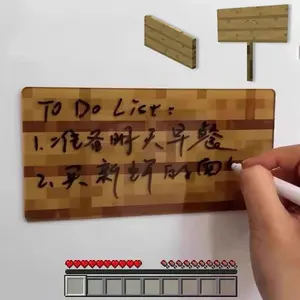 To Do List:
1. 准备明天早餐
2. 买新鲜的面